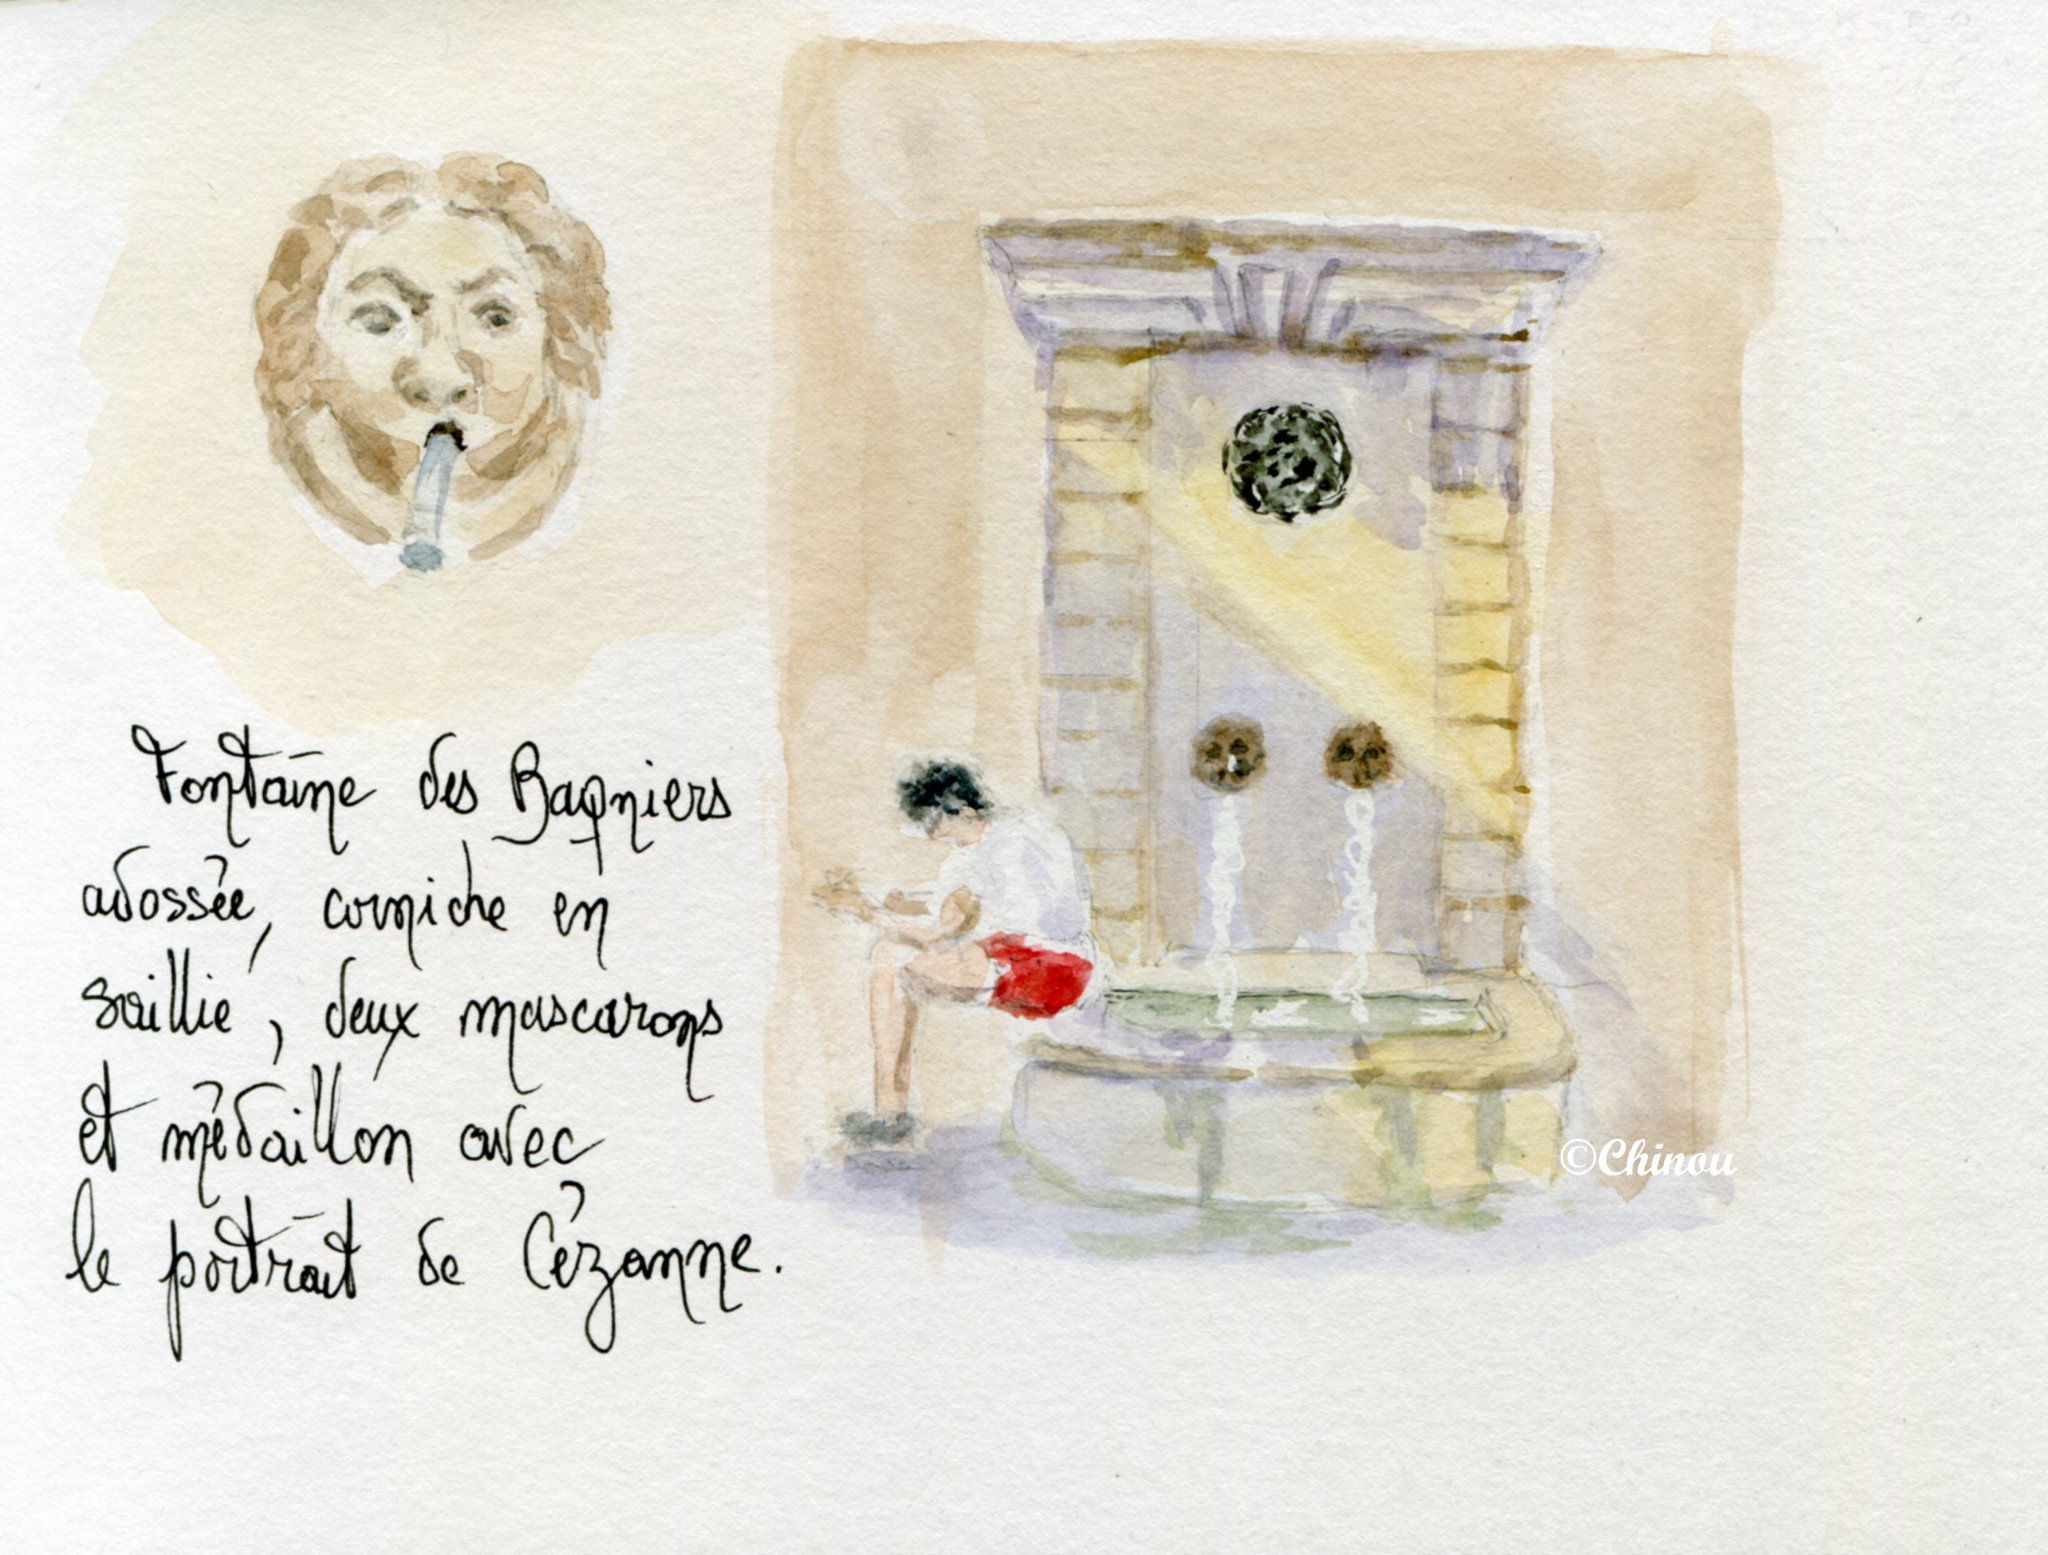 Fontaine des Bagniers
adossée, corniche en
saillie, deux mascarons
et médaillon avec
le portrait de Cézanne.
©Chinou